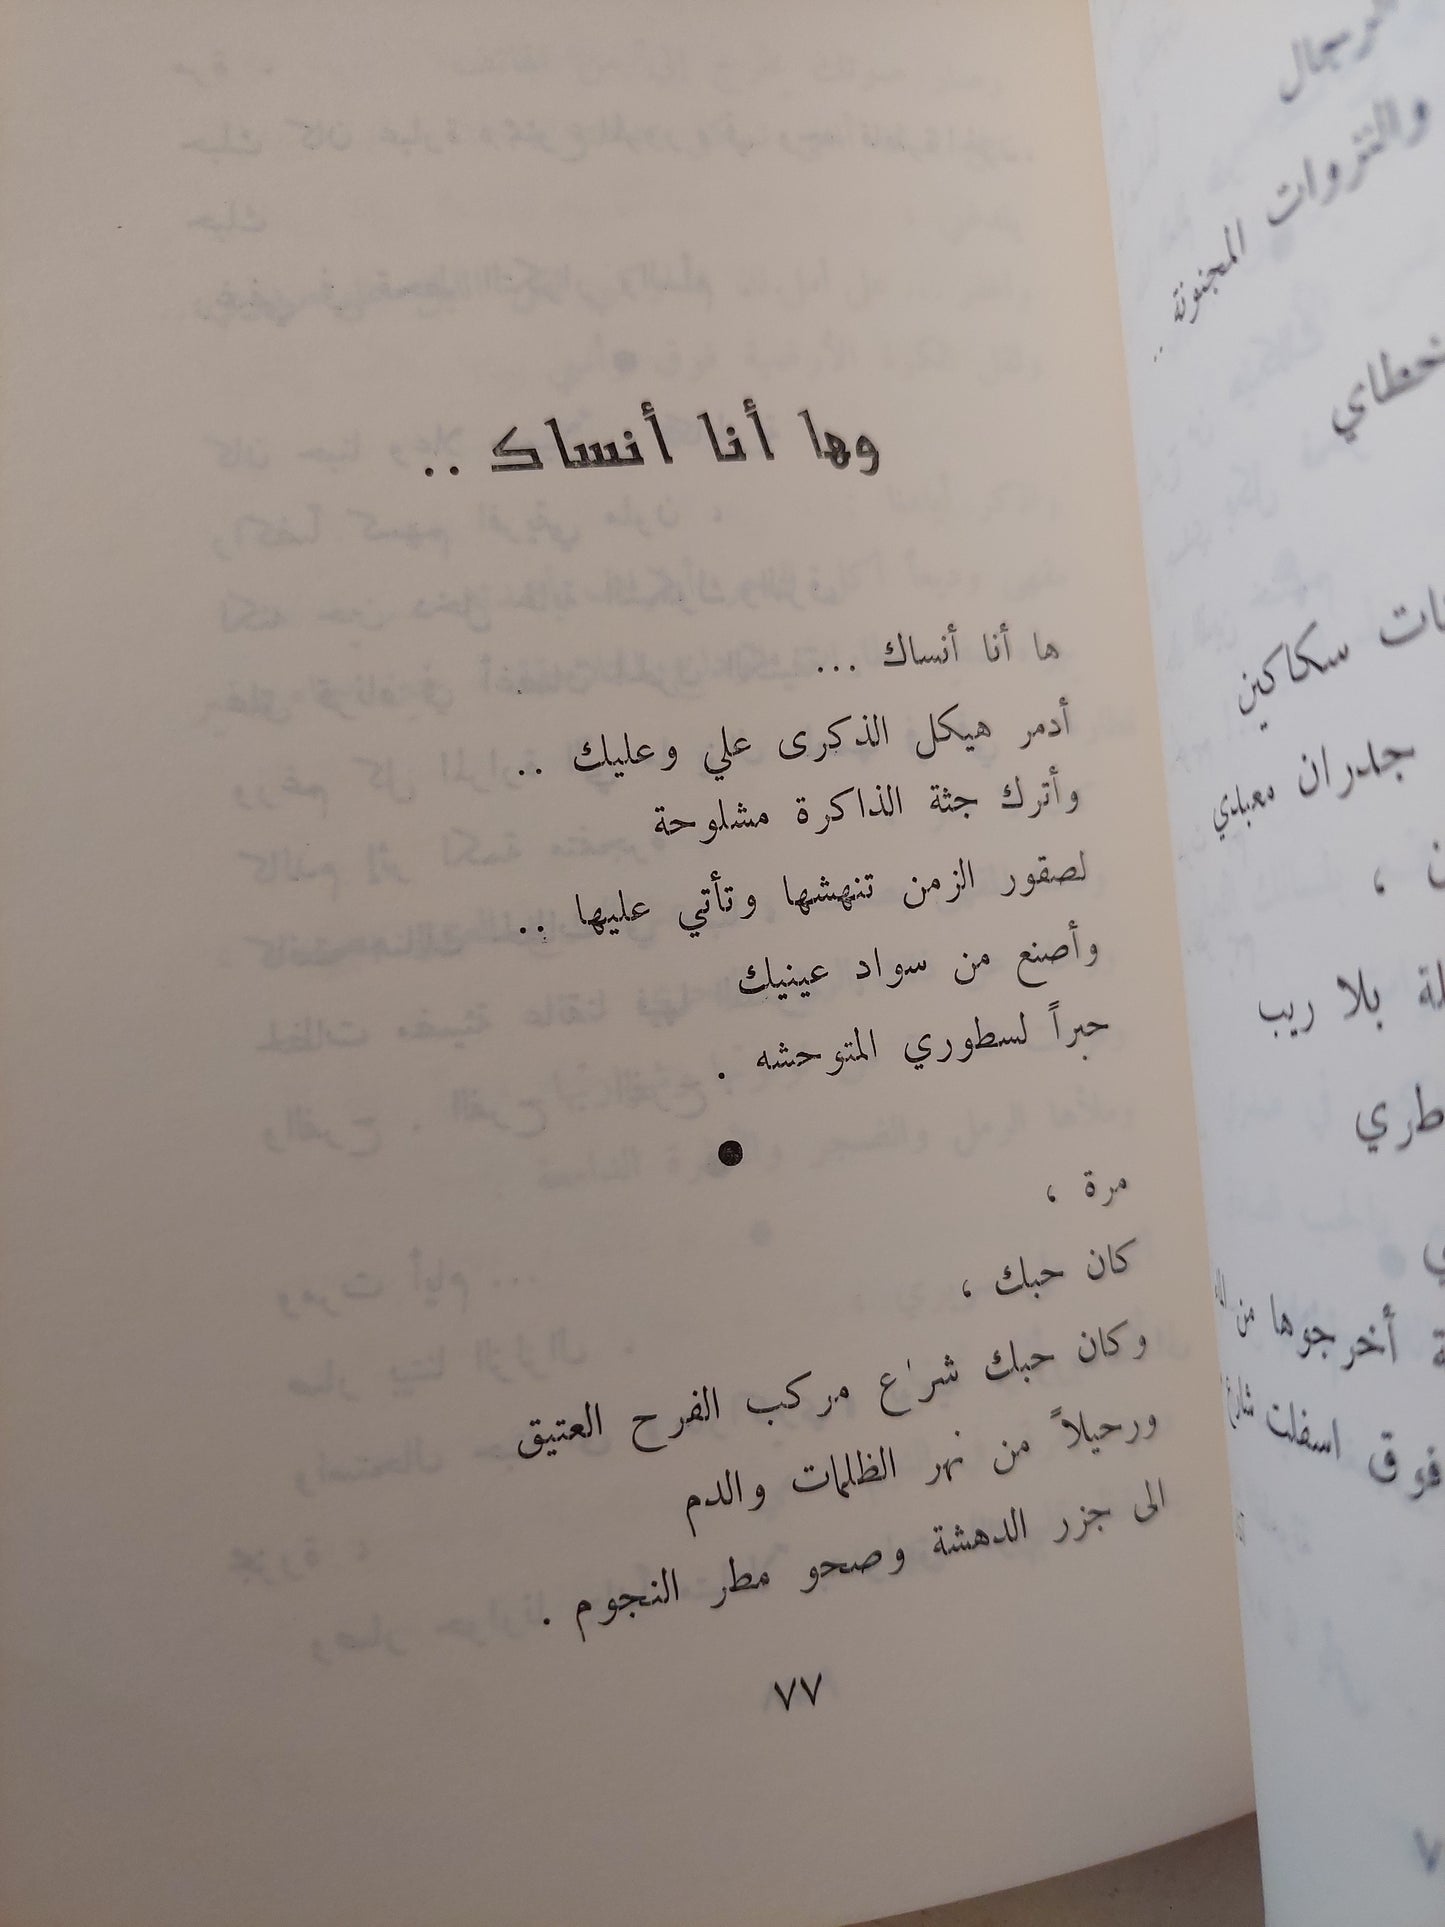 وها أنا أنساك ..
ها أنا أنساك ...
أدمر هيكل الذكرى علي وعليك ..
وأترك جثة الذاكرة مشلوحة
لصقور الزمن تنهشها وتأتي عليها ..
وأصنع من سواد عينيك
حبراً لسطوري المتوحشه .
●
مرة ،
كان حبك ،
وكان حبك شراع مركب الفرح العتيق
ورحيلاً من نهر الظلمات والدم
الى جزر الدهشة وصحو مطر النجوم .
٧٧
والنزوات المجنونة ..
سكاكين
جدران معبدي
بلا ريب
أخرجوها من
فوق اسفلت شارع